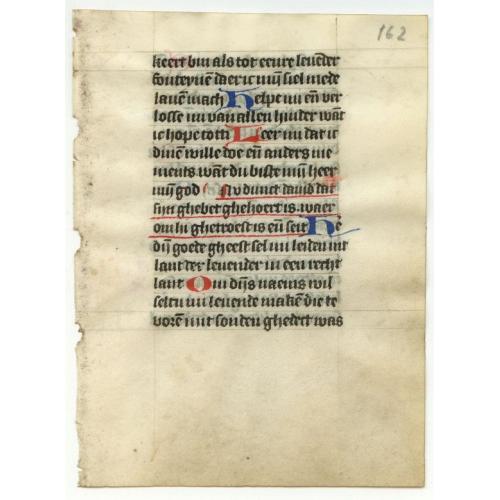 162
keert bin als tot eenre leuender
fonteynē daer ic mijn siel mede
lauen mach Helpe mi eñ ver
losse mi van allen hinder wāt
ic hope tot di Leer mi dat ic
dinē wille doe eñ anders nie
ments. wāt du biste mijn heer
mijn god Nv dunct dauid dat
sijn ghebet ghehoert is. waer
om hi ghetroest is eñ seit
dijn goede gheest sel mi leiden int
lant der leuender in een recht
lant Om dijns naems wil
seltu mi leuende makē die te
voren mit sonden ghedect was